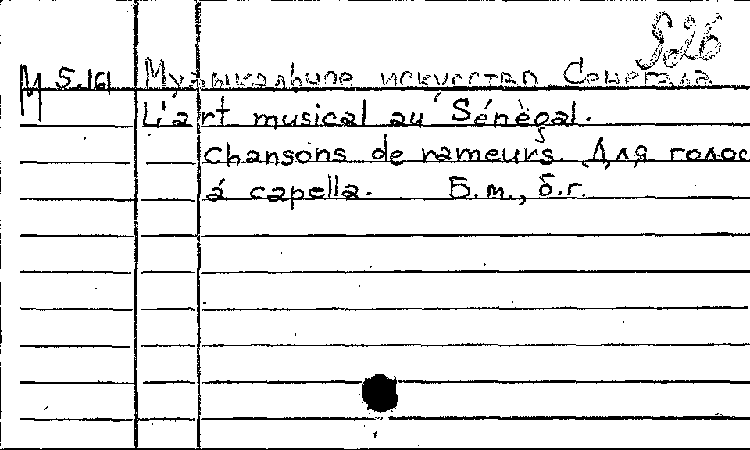 М 5.161 Музыкальное искусство Сенегала
L'art musical au Sénégal.
Chansons de rameurs. Для голос
á capella. Б.m., б.г.